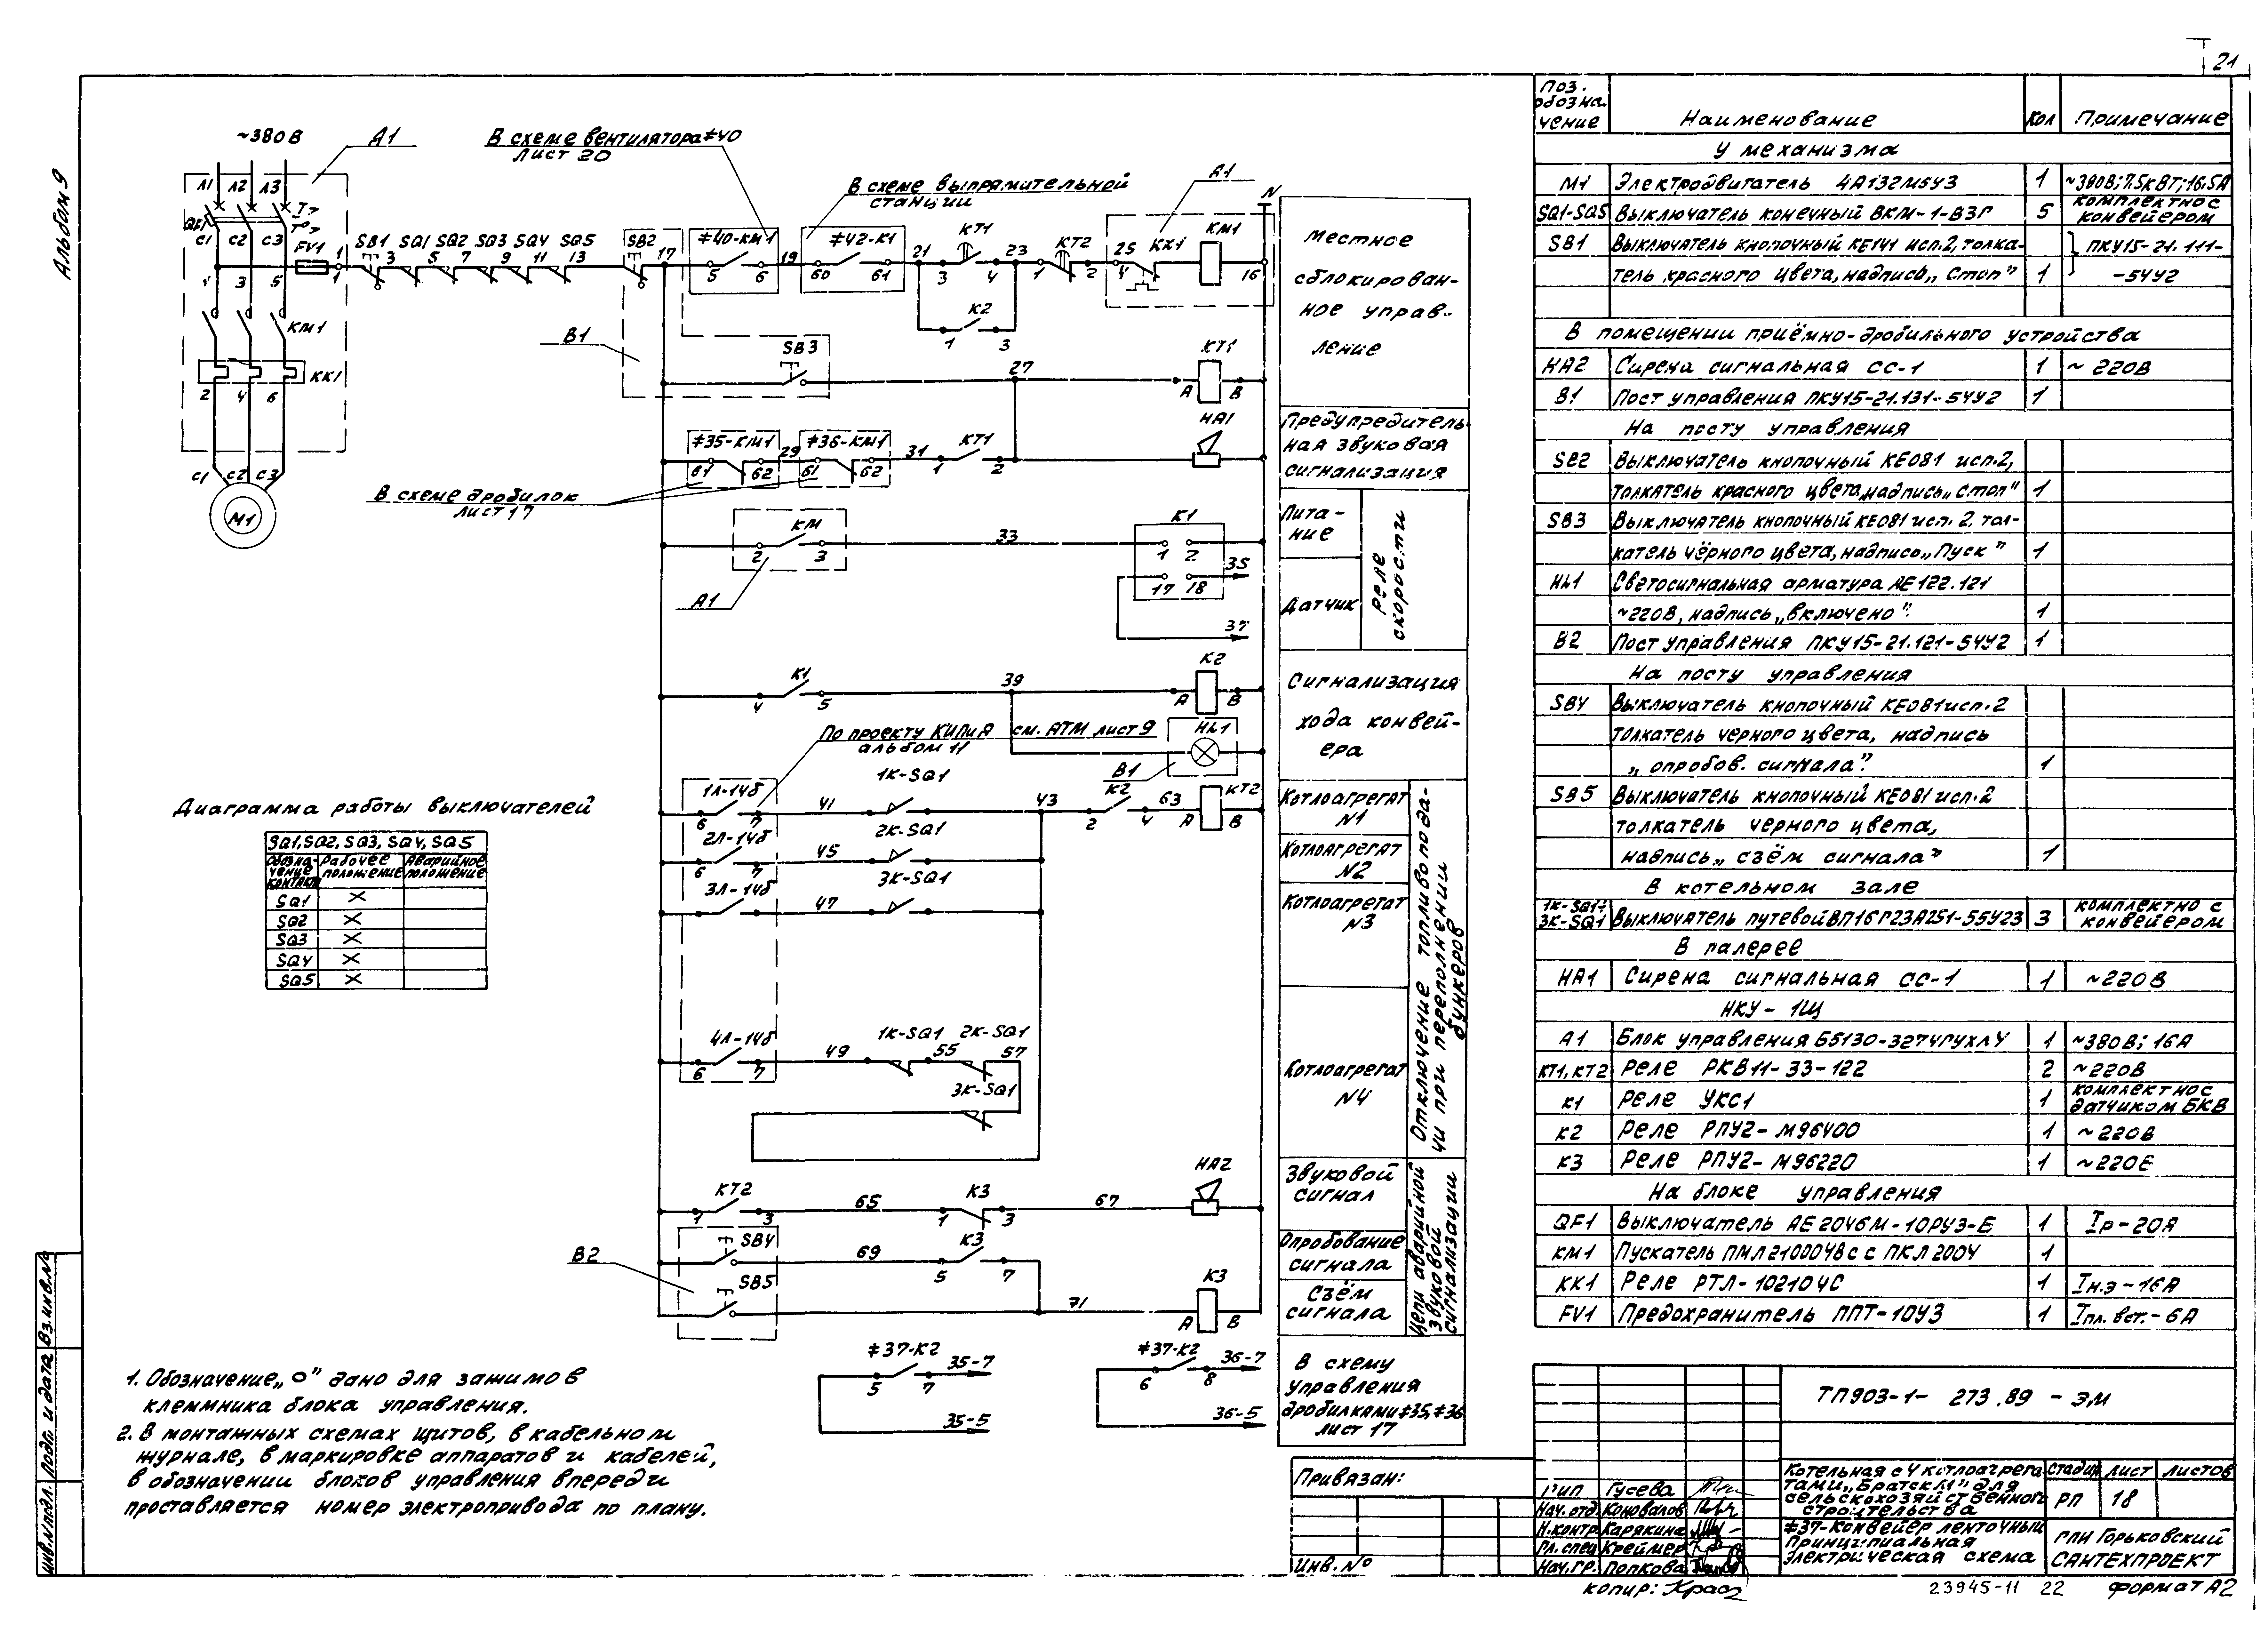 21
Альбом 9
~380В
А1
В схеме вентилятора #40
лист 20
В схеме выпрямительной
станции
А1
N
Л1 Л2 Л3
QF1
I>
T°>
С1 С2 С3
FV1
1 3 5
1 1
SB1 SQ1 SQ2 SQ3 SQ4 SQ5
3 5 7 9 11 13
SB2
17
#40-КМ1
5 6
19
#42-К1
60 61
21
КТ1
3 4
23
КТ2
1 2
25
КК1
4
КМ1
16
К2
1 3
КМ1
КК1
2 4 6
С1 С2 С3
М1
В1
SB3
27
КТ1
А В
#35-КМ1
61 62
29
#36-КМ1
61 62
31
КТ1
1 2
НА1
В схеме дробилок
лист 17
КМ
2 3
33
К1
1 2
35
17 18
37
А1
К1
4 5
39
К2
А В
По проекту КИПиА см. АТМ лист 9
альбом 11
HL1
В1
1Л-14б
6 7
41
1К-SQ1
43
К2
2 4
63
КТ2
А В
2Л-14б
6 7
45
2К-SQ1
3Л-14б
47
3К-SQ1
4Л-14б
6 7
49
1К-SQ1
55
2К-SQ1
57
3К-SQ1
КТ2
1 3
65
К3
1 3
67
НА2
В2
SB4
69
К3
5 7
SB5
71
К3
А В
#37-К2
5 7
35-7
35-5
#37-К2
6 8
36-7
36-5
Местное
сблокирован-
ное управ-
ление
Предупредитель-
ная звуковая
сигнализация
Пита-
ние
Датчик
Реле
скорости
Сигнализация
хода конвей-
ера
Котлоагрегат
N1
Котлоагрегат
N2
Котлоагрегат
N3
Котлоагрегат
N4
Отключение топливопода-
чи при переполнении
бункеров
Звуковой
сигнал
Опробование
сигнала
Съём
сигнала
Цепи аварийной
звуковой
сигнализации
В схему
управления
дробилками #35, #36
лист 17
Диаграмма работы выключателей
SQ1, SQ2, SQ3, SQ4, SQ5
Обозна- Рабочее Аварийное
чение положение положение
контакта
SQ1 X
SQ2 X
SQ3 X
SQ4 X
SQ5 X
1. Обозначение „о" дано для зажимов
клеммника блока управления.
2. В монтажных схемах щитов, в кабельном
журнале, в маркировке аппаратов и кабелей,
в обозначении блоков управления впереди
проставляется номер электропривода по плану.
Поз.
обозна-
чение Наименование Кол Примечание
У механизма
М1 Электродвигатель 4А132М5У3 1 ~380В; 7.5кВт; 16.5А
SQ1-SQ5 Выключатель конечный ВКМ-1-ВЗГ 5 комплектно с
конвейером
SB1 Выключатель кнопочный КЕ141 исп.2, толка- ПКУ15-21.111-
тель красного цвета, надпись „Стоп" 1 -54У2
В помещении приёмно-дробильного устройства
НА2 Сирена сигнальная СС-1 1 ~ 220В
В1 Пост управления ПКУ15-21.131-54У2 1
На посту управления
SB2 Выключатель кнопочный КЕ081 исп.2,
толкатель красного цвета, надпись „Стоп" 1
SB3 Выключатель кнопочный КЕ081 исп. 2, тол-
катель чёрного цвета, надпись „Пуск" 1
HL1 Светосигнальная арматура АЕ122.121
~220В, надпись „включено". 1
В2 Пост управления ПКУ15-21.121-54У2 1
На посту управления
SB4 Выключатель кнопочный КЕ081 исп.2
толкатель черного цвета, надпись
„опробов. сигнала". 1
SB5 Выключатель кнопочный КЕ081 исп.2
толкатель черного цвета,
надпись „съём сигнала" 1
В котельном зале
1К-SQ1÷
3К-SQ1 Выключатель путевой ВП16Г23А251-55У23 3 комплектно с
конвейером
В галерее
НА1 Сирена сигнальная СС-1 1 ~220В
НКУ-1Щ
А1 Блок управления Б5130-3274ГУХЛ4 1 ~380В; 16А
КТ1, КТ2 Реле РКВ11-33-122 2 ~220В
К1 Реле УКС1 1 комплектно с
датчиком БКВ
К2 Реле РПУ2-М96400 1 ~220В
К3 Реле РПУ2-М96220 1 ~220В
На блоке управления
QF1 Выключатель АЕ2046М-10РУ3-Б 1 Iр-20А
КМ1 Пускатель ПМЛ210004Вс с ПКЛ2004 1
КК1 Реле РТЛ-102104С 1 Iн.э-16А
FV1 Предохранитель ППТ-10У3 1 Iпл.вст.-6А
ТП903-1- 273.89 - ЭМ
Привязан:
Инв.N°
ГИП Гусева
Нач.отд. Коновалов
Н.контр. Карякина
Гл.спец Креймер
Нач.гр. Попкова
Котельная с 4 котлоагрега-
тами „Братск М" для
сельскохозяйственного
строительства
стадия лист листов
РП 18
#37-Конвейер ленточный
Принципиальная
электрическая схема
ГПИ Горьковский
САНТЕХПРОЕКТ
Инв.N подл. Подп. и дата Вз.инв.N
копир:
23945-11 22
формат А2